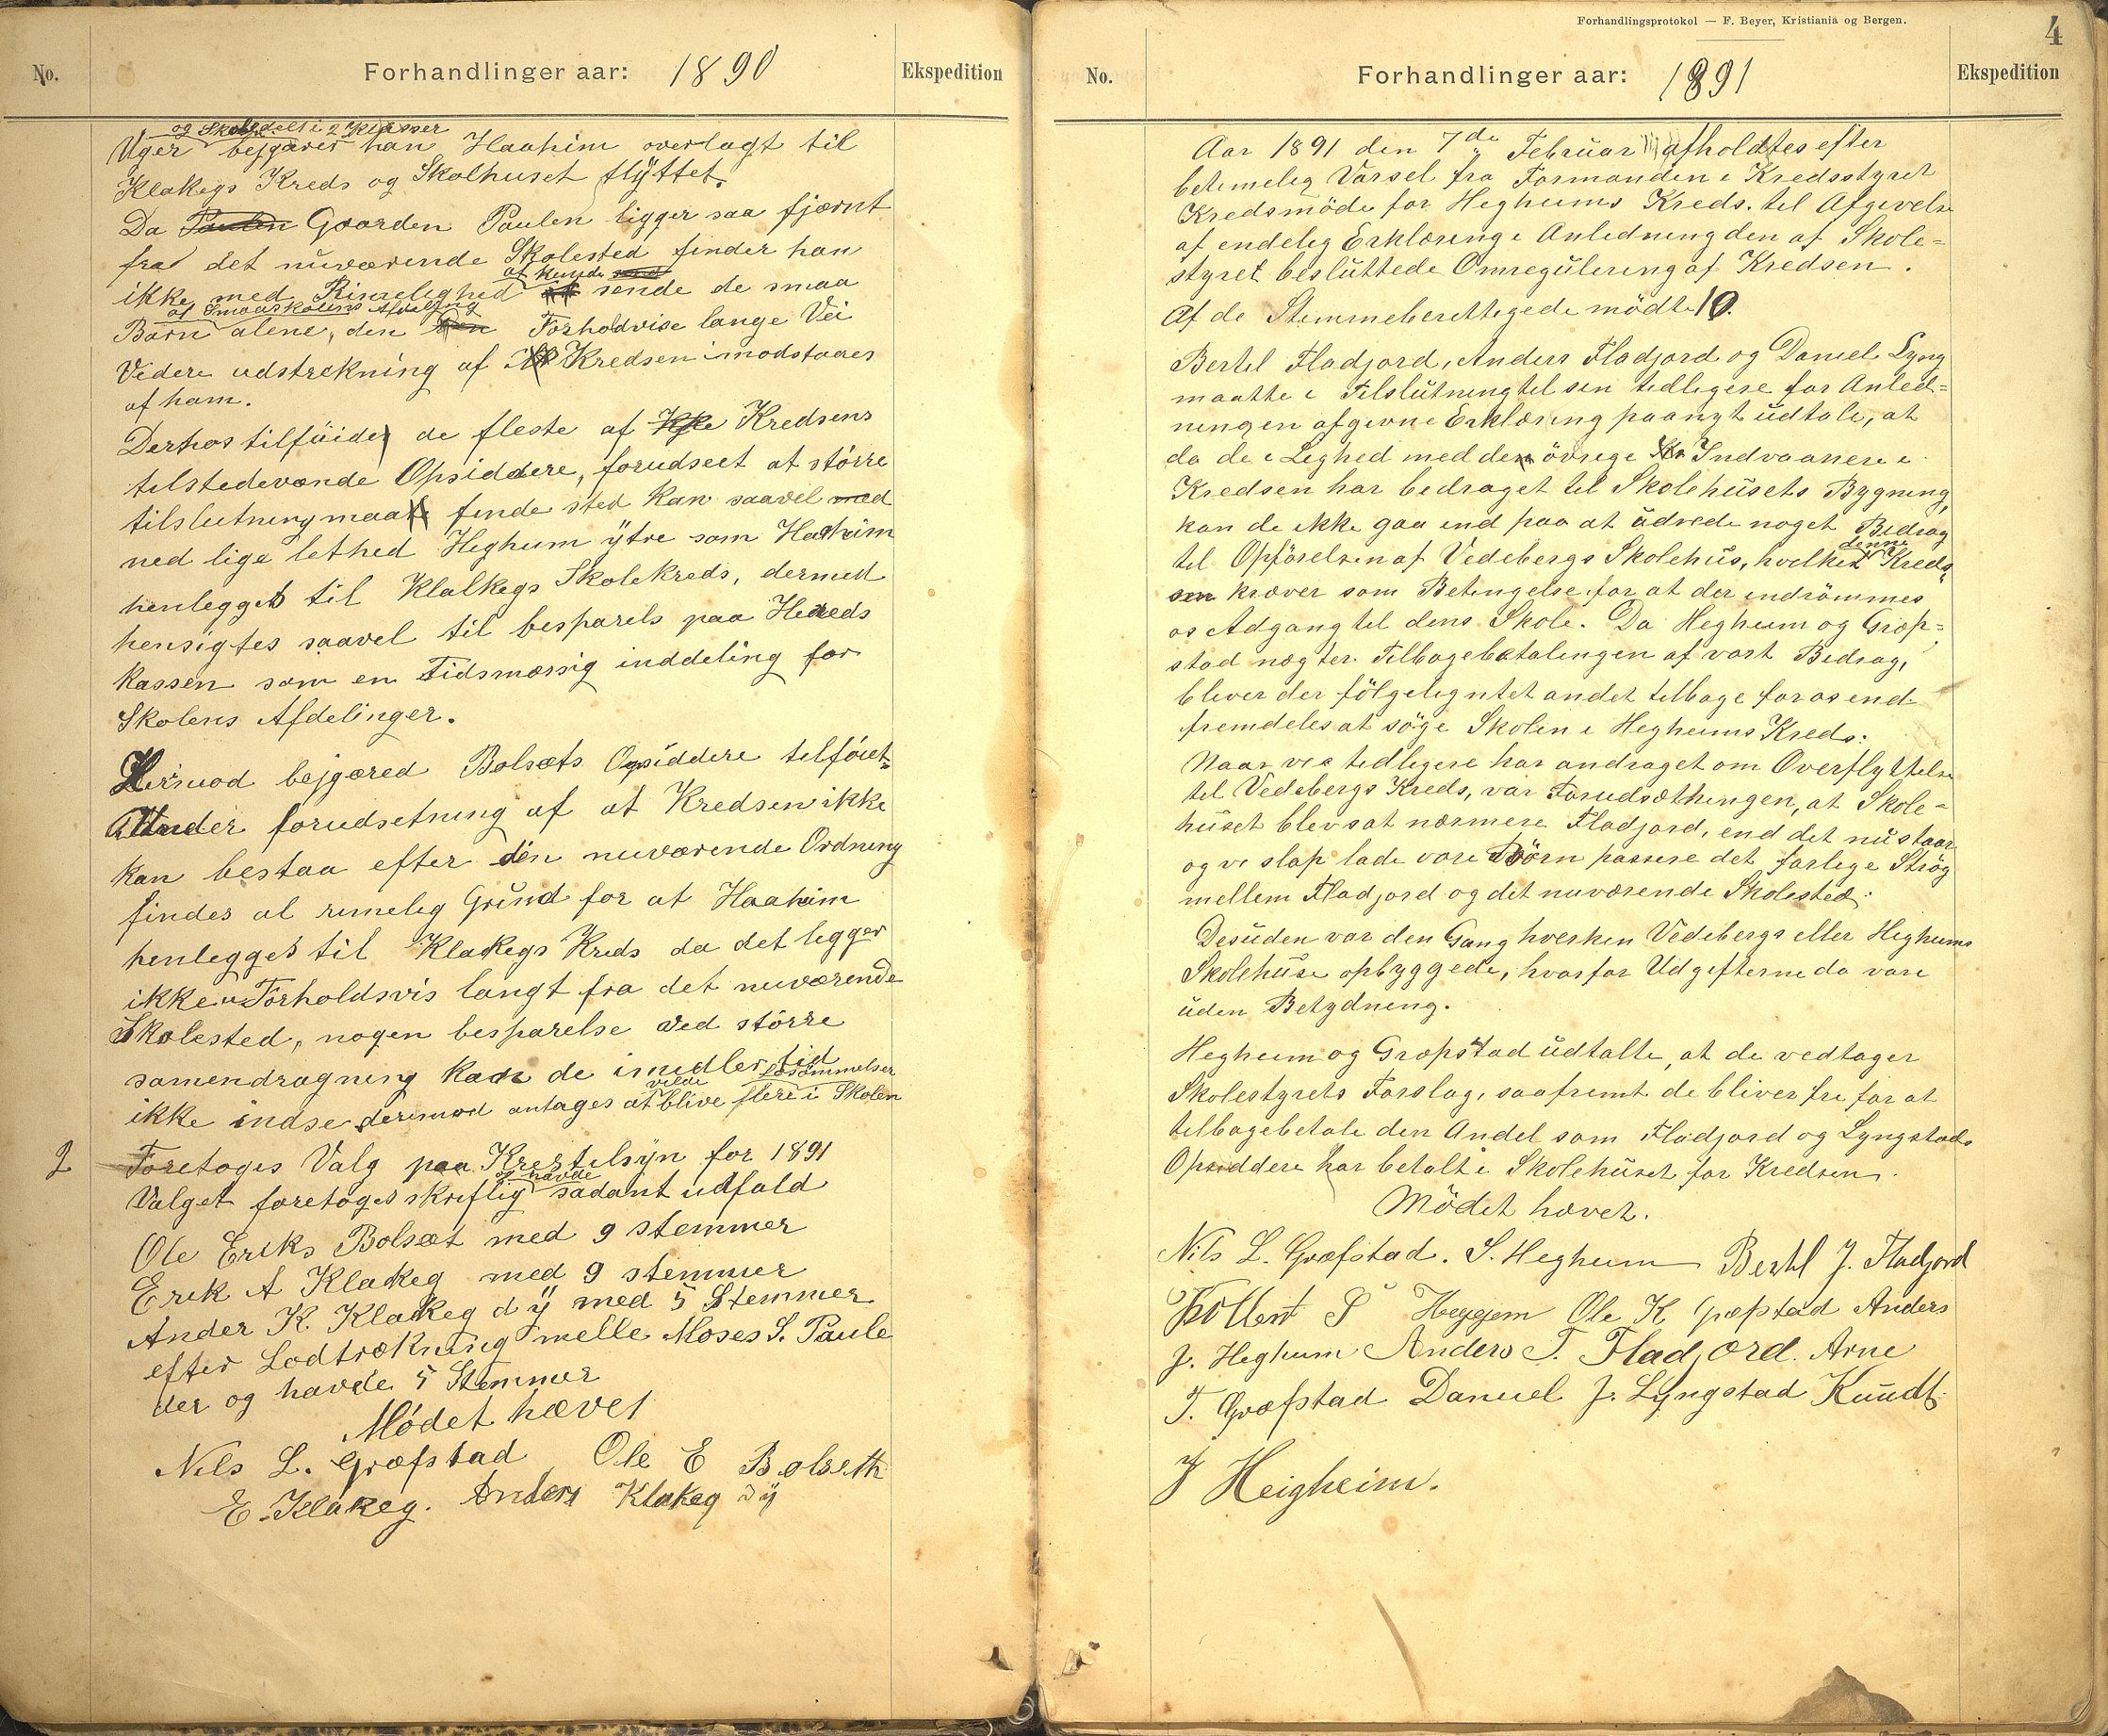 No.
Forhandlinger aar: 1890
Ekspedition
og Skoledelt i 2 Klasser
Uger bejgærer han Haahim overlagt til
Klakegs Kreds og Skolhuset flyttet.
Da Paulen Gaarden Paulen ligger saa fjærnt
fra det nuværende Skolested finder han
at kunde
ikke med Rimelighed sende de smaa
af Smaaskolens Afdeling
Børn alene, den Forholdvise lange Vei
Videre udstrekning af Kredsen imodstaaes
af ham.
Derhos tilføides de fleste af Kredsens
tilstedevænde Opsiddere, forudseet at større
tilslutning maa finde sted kan saavel med
ned lige lethed Heghum ytre som Haahim
henlegges til Klalkegs Skolekreds, dermed
hensigtes saavel til besparels paa Hereds
kassen som en Tidsmæssig inddeling for
Skolens Afdelinger.
Hermod bejgæred Bolsæts Opsiddere tilføiet
Under forudsetning af at Kredsen ikke
kan bestaa efter den nuværende Ordning
findes al rimelig Grund for at Haahim
henlegges til Klakegs Kreds da det legger
ikke Forholdsvis langt fra det nuværende
Skolested, nogen besparelse ved større
samendragning kan de imidlertid
vilde forsømmelser
ikke indse derimod antages at blive flere i Skolen
2
Foretoges Valg paa Krestilsyn for 1891
og havde
Valget foretoges skriflig sadant udfald
Ole Eriks Bolsæt med 9 stemmer
Erik A Klakeg med 9 stemmer
Ander K. Klakeg d y med 5 Stemmer
efter Lodtrækning melle Moses S. Paule
der og havde 5 Stemmer
Mødet hævet
Nils L. Græfstad Ole E Bolseth
E. Klakeg. Anders Klakeg dy
Forhandlingsprotokol — F. Beyer, Kristiania og Bergen.
4
No.
Forhandlinger aar: 1891
Ekspedition
Aar 1891 den 7de Februar afholdtes efter
betimelig Varsel fra Formanden i Kredsstyret
Kredsmöde for Heghums Kreds. til Afgivelse
af endelig Erklæring i Anledning den af Skole=
styret besluttede Omregulering af Kredsen.
Af de Stemmeberettigede mödte 10.
Bertel Fladjord, Anders Fladjord og Daniel Lyng
maatte i Tilslutning til sin tidligere for Anled=
ningen afgivne Erklæring paanyt udtale, at
da de i Lighed med den övrige Indvaanere i
Kredsen har bedraget til Skolehusets Bygning,
kan de ikke gaa ind paa at udrede noget Bidrag
denne
til Opförelsen af Vedebergs Skolehus, hvilket Kreds
sen kræver som Betingelse for at der indrömmes
os Adgang til dens Skole. Da Heghum og Græp=
stad nægter Tilbagebetalingen af vort Bidrag,
bliver der fölgelig intet andet tilbage for os end
fremdeles at söge Skolen i Heghums Kreds.
Naar vi tidligere har andraget om Overflyttelse
til Vedebergs Kreds, var Forudsætningen, at Skole=
huset blev sat nærmere Fladjord, end det nu staar
og vi slap lade vore Börn passere det farlige Strög
mellem Fladjord og det nuværende Skolested.
Desuden var den Gang hverken Vedebergs eller Heghums
Skolehuse opbyggede, hvorfor Udgifterne da vare
uden Betydning.
Heghum og Græpstad udtalte, at de vedtager
Skolestyrets Forslag, saafremt de bliver fri for at
tilbagebetale den Andel som Fladjord og Lyngstads
Opsiddere har betalt i Skolehuset for Kredsen.
Mödet hævet.
Nils L. Græfstad. S. Heghum Bertel J. Fladjord
Kolben S Heggem Ole K Græpstad Anders
J. Heghum Anders T. Fladjord. Arne
T. Græfstad Daniel J. Lyngstad Knudt
J Heigheim.